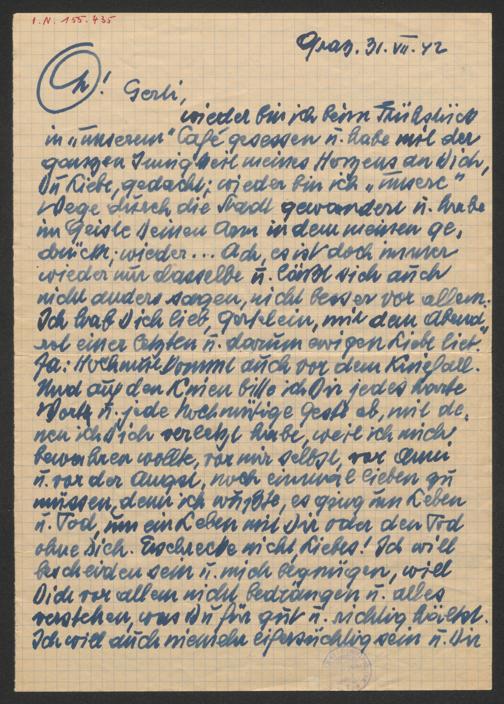 I.N. 155.435
Graz. 31. VII. 42
Gerli,
wieder bin ich beim Frühstück
in „unserem" Café gesessen u. habe mit der
ganzen Innigkeit meines Herzens an Dich,
Du Liebe, gedacht; wieder bin ich „unsere"
Wege durch die Stadt gewandert u. habe
im Geiste Deinen Arm in dem meinen ge,
drückt; wieder... Ach, es ist doch immer
wieder nur dasselbe u. läßt sich auch
nicht anders sagen, nicht besser vor allem:
Ich hab Dich lieb, Gerlein, mit dem Abend,
rot einer letzten u. darum ewigen Liebe lieb.
Ja: Hochmut kommt auch vor dem Kniefall.
Und auf den Knien bitte ich Dir jedes harte
Wort u. jede hochmütige Geste ab, mit de,
nen ich Dich verletzt habe, weil ich mich
bewahren wollte, vor mir selbst, vor
u. vor der Angst, noch einmal lieben zu
müssen, denn ich wußte, es ging um Leben
u. Tod, um ein Leben mit Dir oder den Tod
ohne Dich. Erschrecke nicht Liebes! Ich will
bescheiden sein u. mich begnügen, will
Dich vor allem nicht bedrängen u. alles
verstehen, was Du für gut u. richtig hältst.
Ich will auch nicht eifersüchtig sein u. Dir